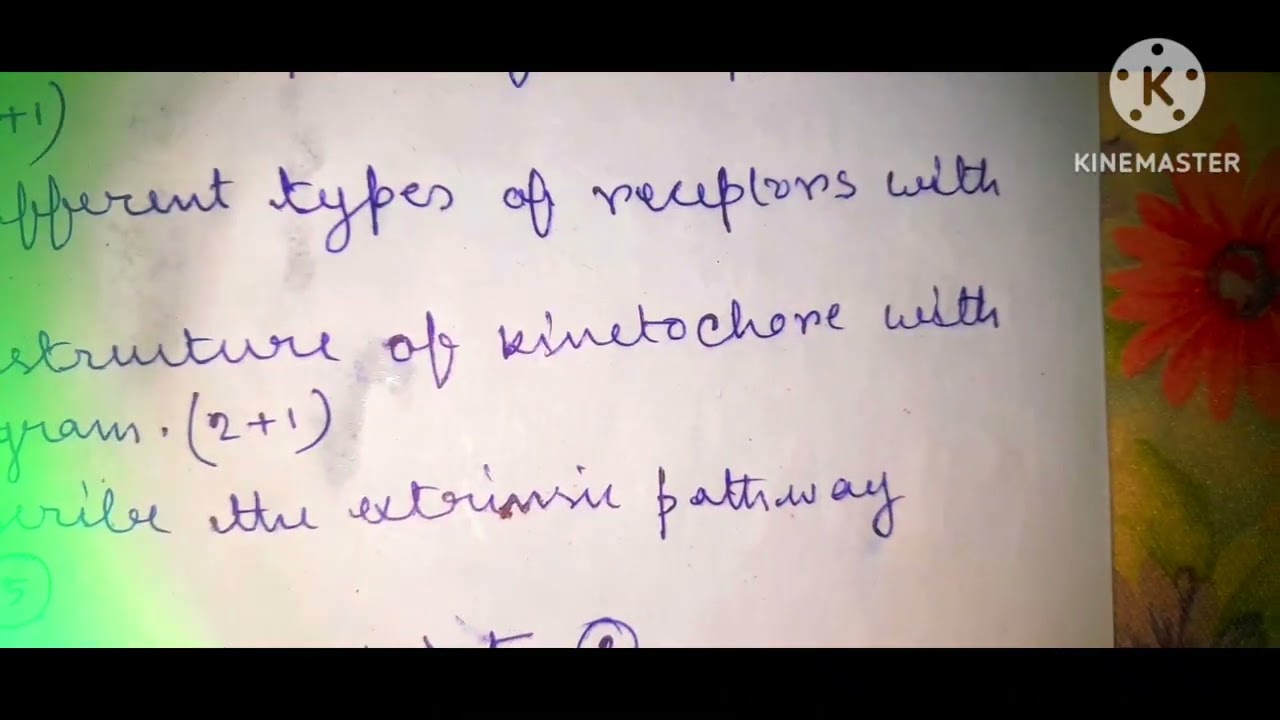 +1)
K
KINEMASTER
fferent types of receptors with
structure of kinetochore with
gram. (2+1)
cribe the extrinsic pathway
5